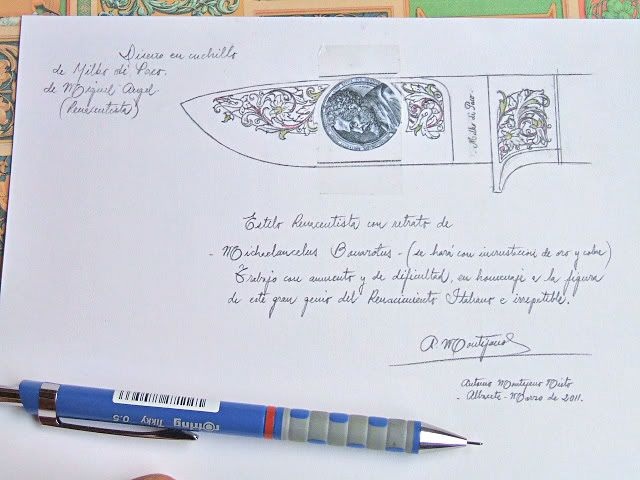 Diseño en cuchillo
de Milko di Paco.
de Miguel Angel
(Renacentista)
- Milko di Paco -
Estilo Renacentista con retrato de
- Michaelancelus Bonarotus - (se hará con incrustacion de oro y cobre)
Trabajo con aumento y de dificultad, en homenaje a la figura
de este gran genio del Renacimiento Italiano e irrepetible.
A. Montejano
Antonio Montejano Nieto
- Albacete - Marzo de 2011.
rotring Tikky 0.5